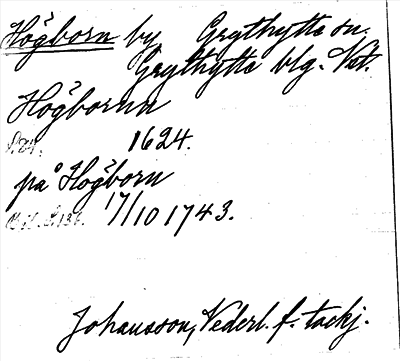 Högborn by Grythytte sn.
Grythytte blg. Vst.
Högborna
S. 84. 1624.
på Högborn
17/10 1743.
Johansson, Vederl. f. tackj.